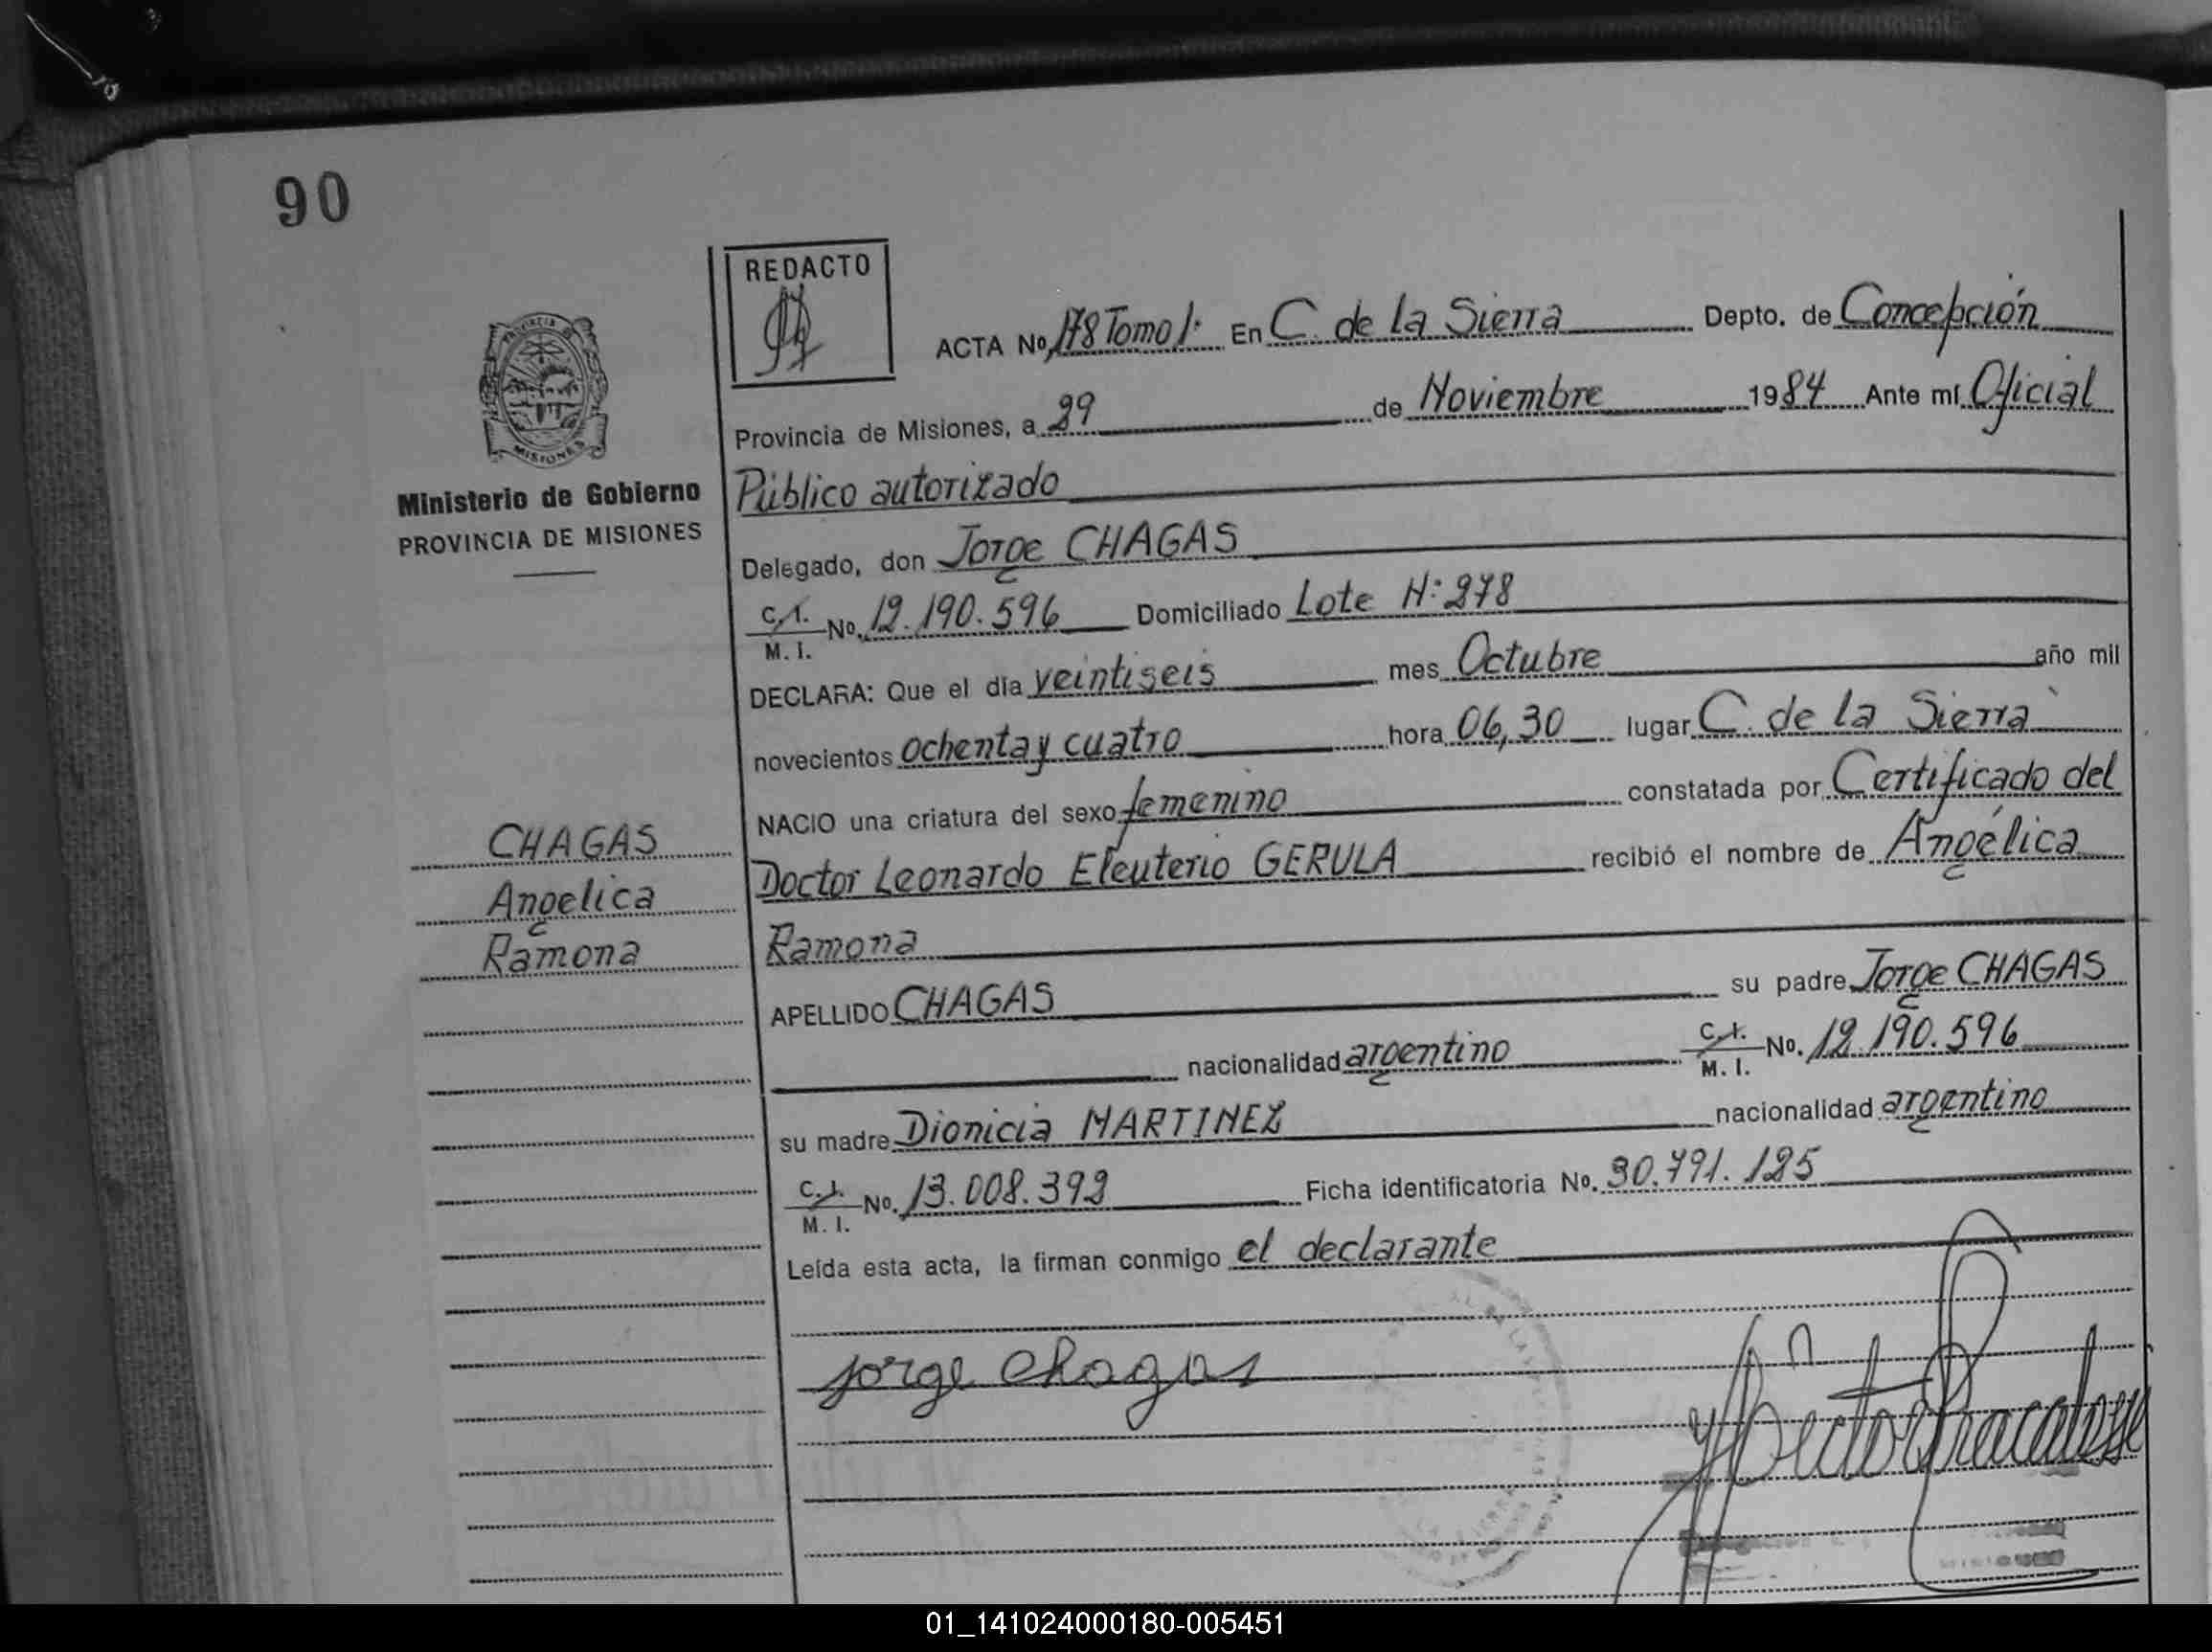 90
REDACTO
ACTA No. 178 Tomo 1. En C. de la Sierra Depto. de Concepción
Provincia de Misiones, a 29 de Noviembre 1984 Ante mí Oficial
Público autorizado
Delegado, don Jorge CHAGAS
C. I. M. I. No. 12.190.596 Domiciliado Lote N: 278
DECLARA: Que el día veintiseis mes Octubre año mil
novecientos ochenta y cuatro hora 06,30 lugar C. de la Sierra
NACIO una criatura del sexo femenino constatada por Certificado del
Doctor Leonardo Eleuterio GERULA recibió el nombre de Angélica
Ramona
APELLIDO CHAGAS su padre Jorge CHAGAS
nacionalidad argentino C. I. M. I. No. 12.190.596
su madre Dionicia MARTINEZ nacionalidad argentino
C. I. M. I. No. 13.008.392 Ficha identificatoria No. 30.791.125
Leída esta acta, la firman conmigo el declarante
Jorge Chagas
PROVINCIA DE MISIONES
Ministerio de Gobierno
PROVINCIA DE MISIONES
CHAGAS
Angelica
Ramona
01_141024000180-005451